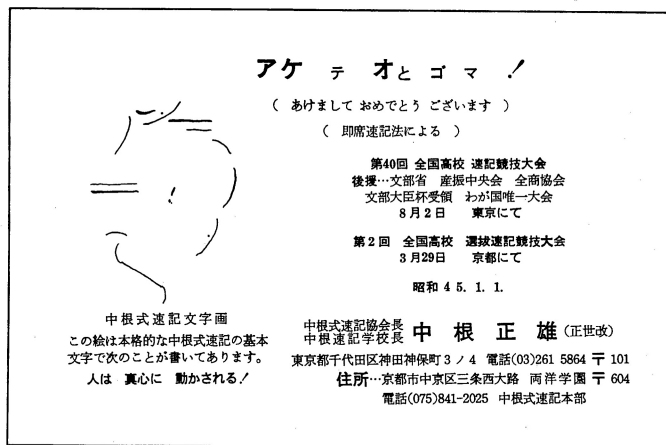 アケ テ オと ゴ マ !
( あけまして おめでとう ございます )
( 即席速記法による )
第40回 全国高校 速記競技大会
後援…文部省 産振中央会 全商協会
文部大臣杯受領 わが国唯一大会
8月2日 東京にて
第2回 全国高校 選抜速記競技大会
3月29日 京都にて
昭和 45. 1. 1.
中根式速記文字画
この絵は本格的な中根式速記の基本
文字で次のことが書いてあります。
人は 真心に 動かされる!
中根式速記協会長
中根速記学校長 中 根 正 雄 (正世改)
東京都千代田区神田神保町3ノ4 電話(03)261 5864 〒 101
住所…京都市中京区三条西大路 両洋学園 〒 604
電話(075)841-2025 中根式速記本部